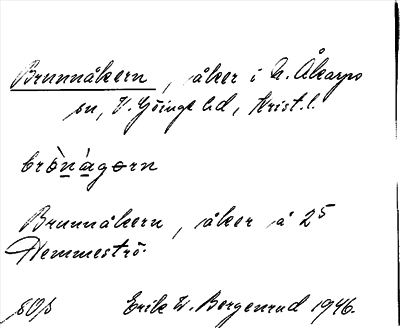 Brunnåkern, åker i N. Åkarps
sn, V. Göinge hd, Krist. l.
brònàgɘrn
Brunnåkern, åker å 2⁵
Hemmeströ.
Erik W. Bergenrud 1946.